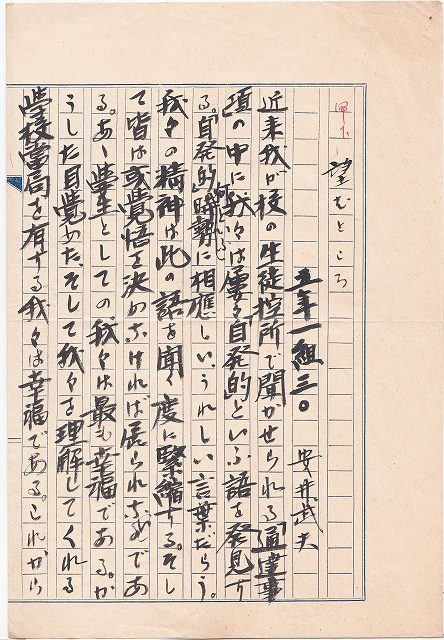 望むところ
五年一組三〇 安井武夫
近来我が校の生徒控所で聞かせられる「通達事
項の中に、我々は屡々「自発的」といふ語を発見す
る。「自発的」何といふ時勢に相應しい、うれしい言葉だらう。
我々の精神は此の語を聞く度に緊縮する。そし
て皆は或覺悟を決めなければ居られないのであ
る。あゝ學生としての我々は最も幸福である。か
うした目覺めた、そして我々を理解してくれる
學校當局を有する我々は幸福である。これから